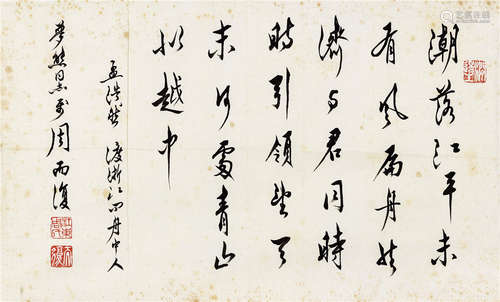 潮落江平未
有風扁舟共
濟与君同時
時引領望天
末何處青山
似越中
孟浩然 渡浙江问舟中人
夢熊同志 周而復